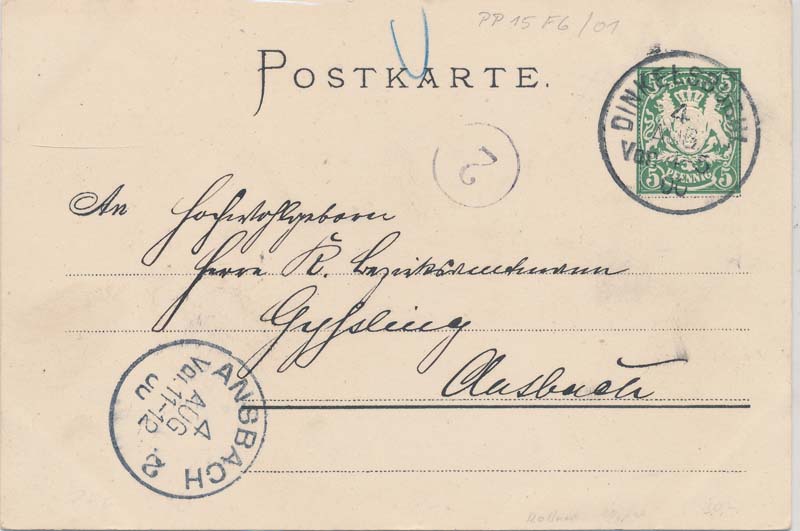 PP 15 F6/01
POSTKARTE.
DINKELSBÜHL
4
AUG
Vor.
00
5 5
PFENNIG
5 5
2
An Hochwohlgeborn
Herrn K. Bezirksamtmann
Gyßling
Ansbach
ANSBACH 2
4
AUG
Vor. 11-12
00